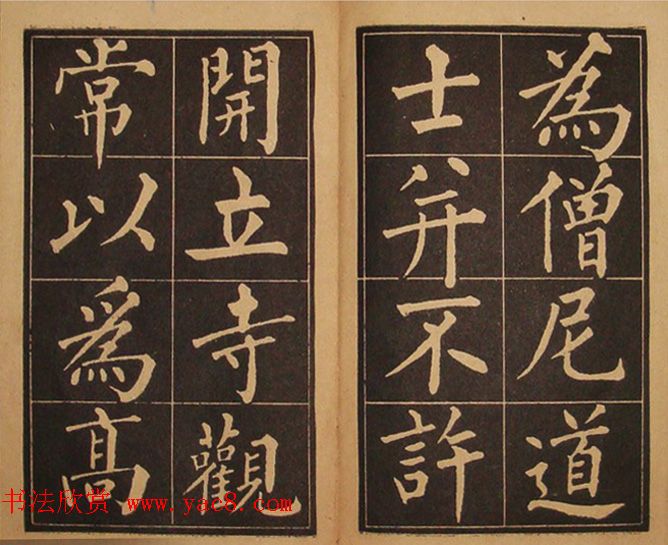 為僧尼道
士并不許
開立寺觀
常以爲髙
书法欣赏 www.yac8.com